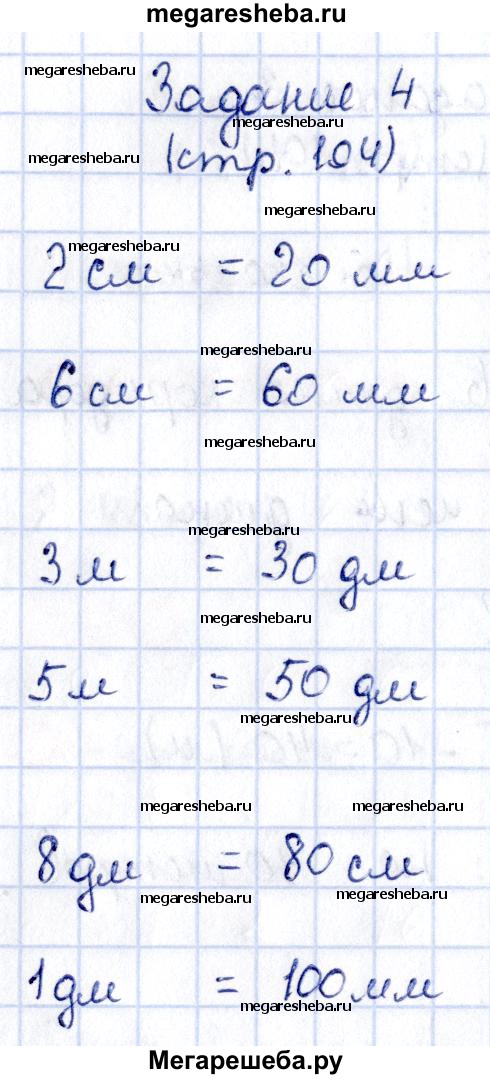 megaresheba.ru
megaresheba.ru
Задание 4
megaresheba.ru
megaresheba.ru
(стр. 104)
megaresheba.ru
megaresheba.ru
2 см = 20 мм
megaresheba.ru
6 см = 60 мм
megaresheba.ru
megaresheba.ru
3 м = 30 дм
megaresheba.ru
5 м = 50 дм
megaresheba.ru
megaresheba.ru megaresheba.ru
8 дм = 80 см
megaresheba.ru megaresheba.ru
1 дм = 100 мм
megaresheba.ru
Мегарешеба.ру